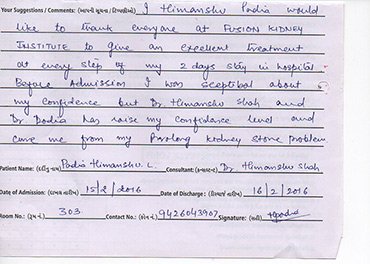 Your Suggestions / Comments: (આપની સૂચના / ટિપ્પણીઓ) I Himanshu Padia would
like to thank everyone at FUSION KIDNEY
INSTITUTE to give an excellent treatment
at every step of my 2 days stay in hospital
Before Admission I was sceptibal about
my confidence but Dr. Himanshu Shah and
Dr Dodia has raise my confidance level and
cure me from my Prolong kidney stone problem
Patient Name: (દર્દીનું નામ) Padia Himanshu L. Consultant: Dr. Himanshu Shah
Date of Admission: (દાખલ તારીખ) 15/2/2016 Date of Discharge: 16/2/2016
Room No.: (રૂમ નં.) 303 Contact No.: (ફોન નં.) 9426043907 Signature: (સહી)